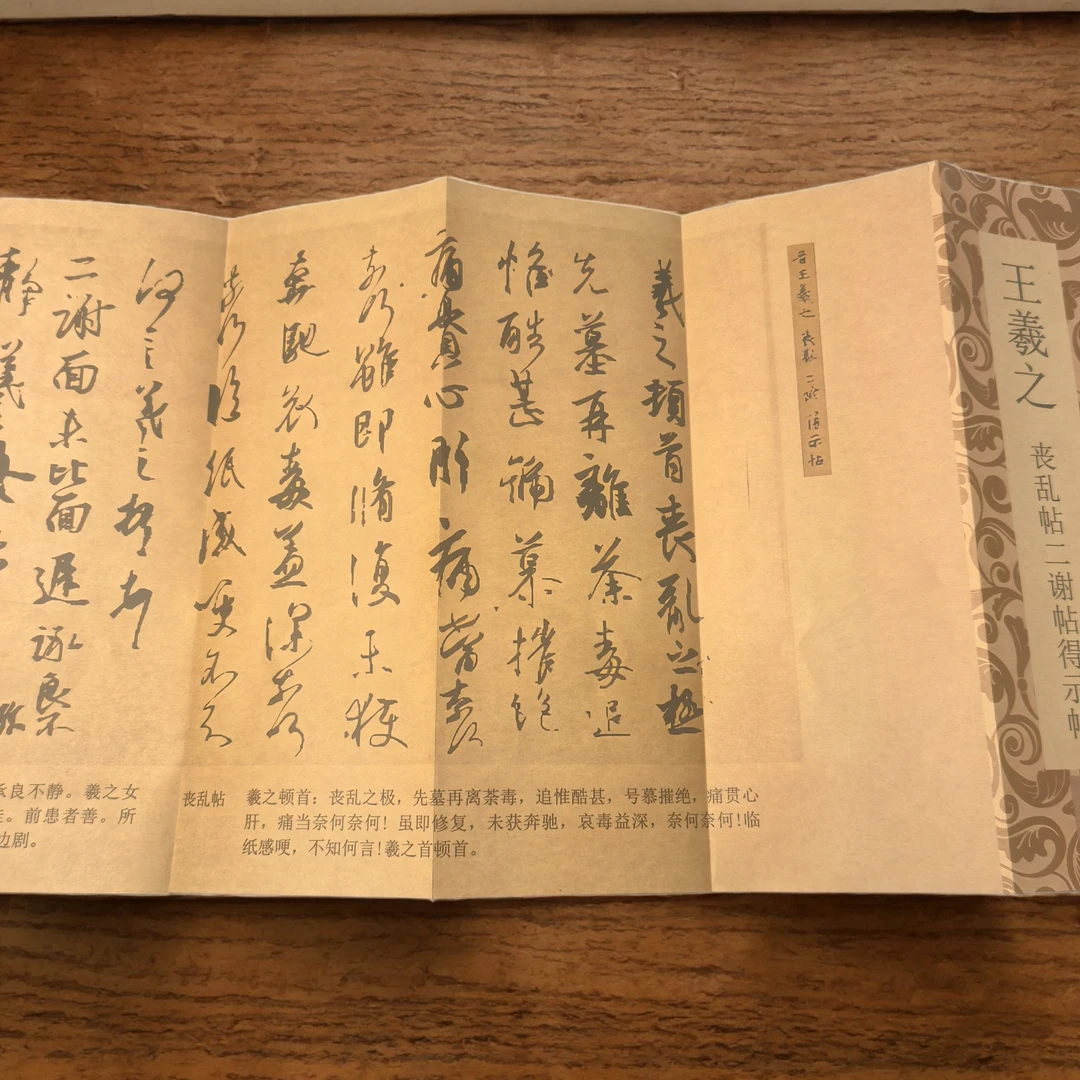 王羲之
丧乱帖二谢帖得示帖
晋王羲之 丧乱 二谢 得示帖
羲之頓首喪亂之極
先墓再離荼毒追
惟酷甚號慕摧絶
痛貫心肝痛當奈何
奈何雖即脩復未獲
奔馳哀毒益深奈何
奈何臨紙感哽不知
何言羲之頓首頓首
二謝面未比面遲詠良不
靜羲之
丧乱帖
羲之顿首：丧乱之极，先墓再离荼毒，追惟酷甚，号慕摧绝，痛贯心
肝，痛当奈何奈何！虽即修复，未获奔驰，哀毒益深，奈何奈何！临
纸感哽，不知何言！羲之首顿首。
良不静。羲之女
。前患者善。所
边剧。